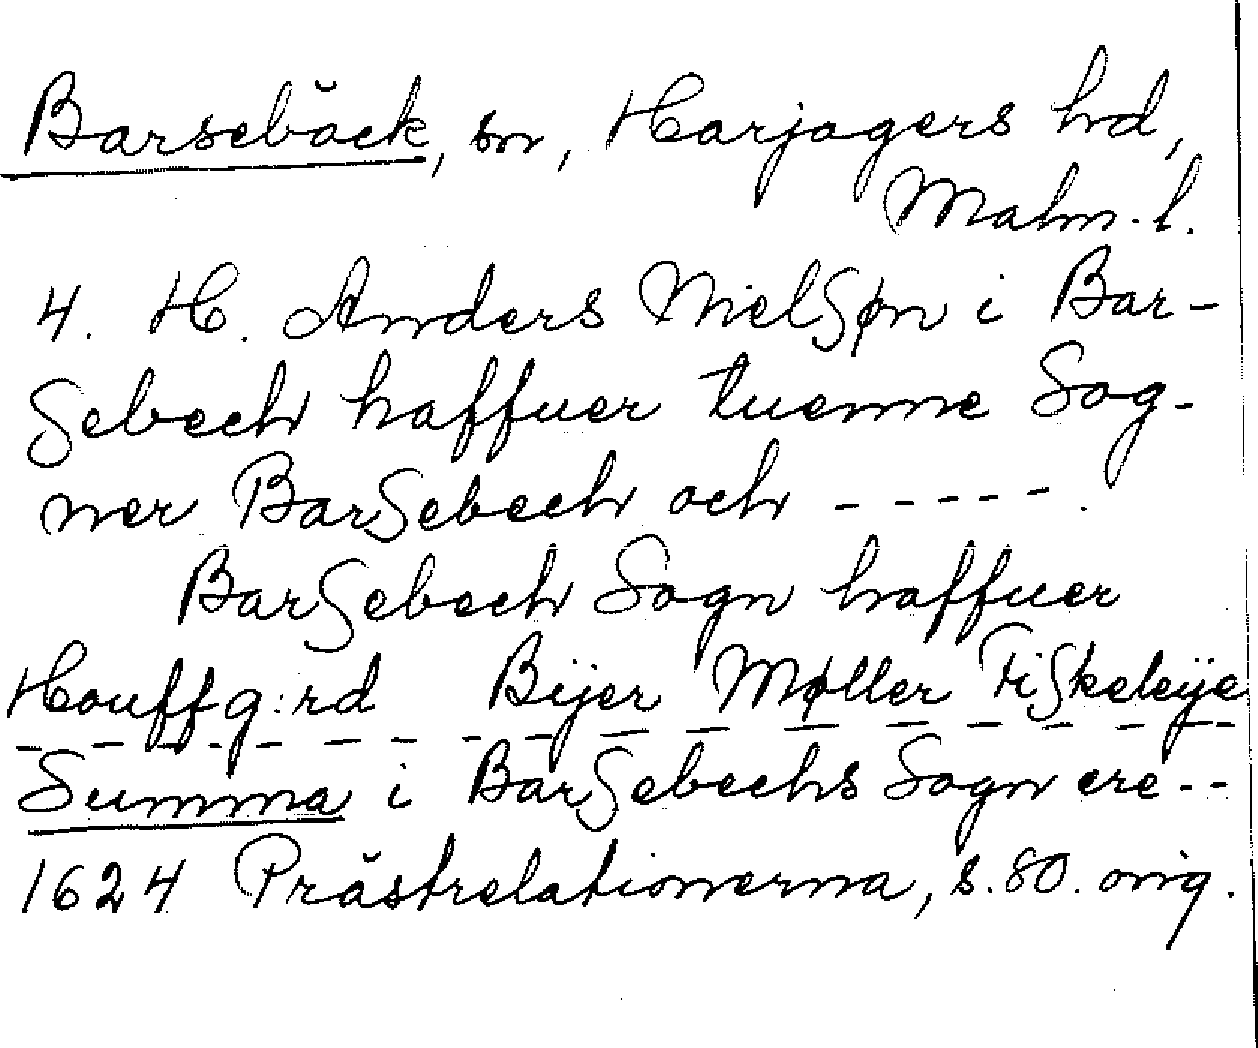 Barsebäck, sn, Harjagers hd,
Malm. l.
4. H. Anders Nielsøn i Bar-
sebech haffuer tuenne Sog-
ner Barsebech och - - - - - .
Barsebech Sogn haffuer
Houffg:rd Bÿer Møller Fiskeleÿe
- - - - - - - - - - - - - - - -
Summa i Barsebechs Sogn ere - -
1624 Prästrelationerna, s. 80. orig.